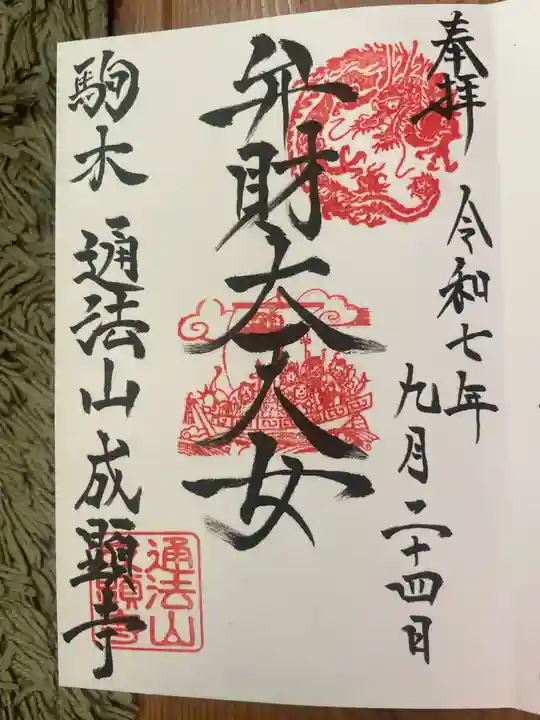 奉拝
令和七年
九月二十四日
弁財大天女
駒木 通法山 成顕寺
通法山
成顕寺